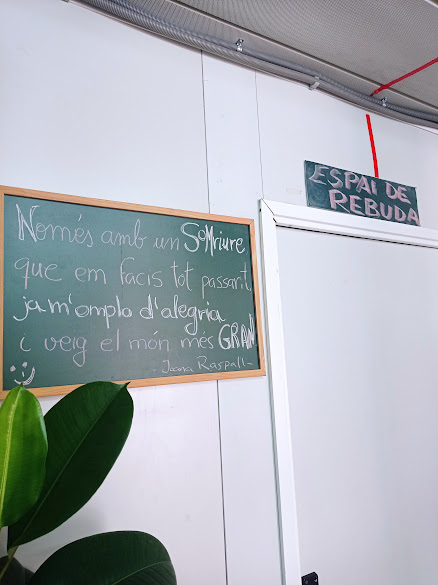 Només amb un SOMriure
que em facis tot passant
ja m'omplo d'alegria
i veig el món més GRAN
- Joana Raspall -
ESPAI DE
REBUDA